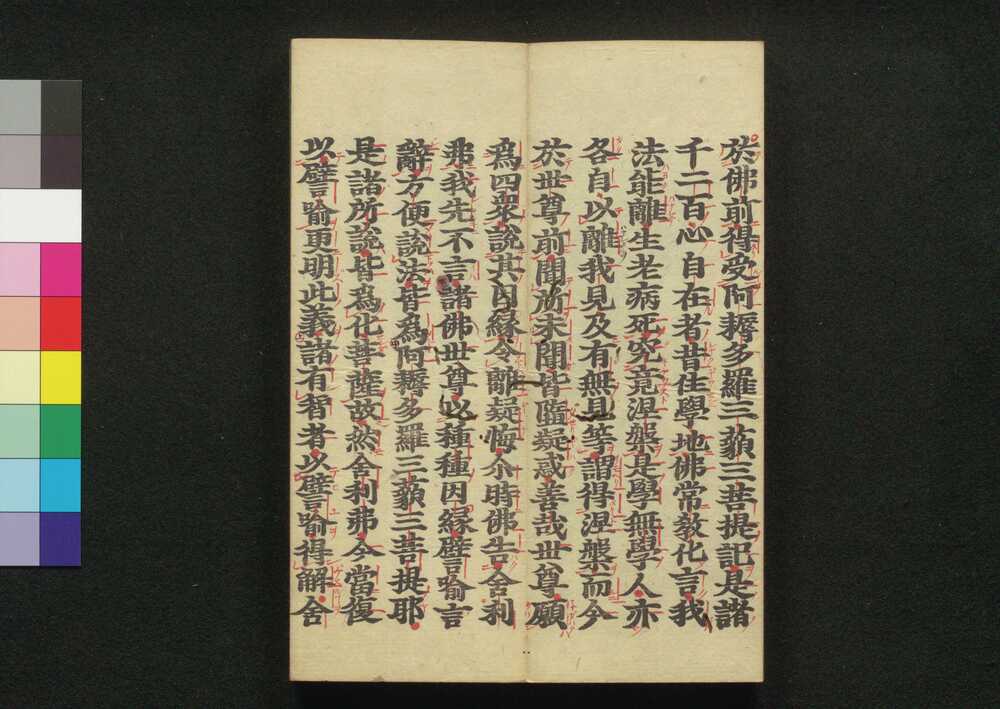 於佛前得受阿耨多羅三藐三菩提記是諸
千二百心自在者昔住學地佛常敎化言我
法能離生老病死究竟涅槃是學無學人亦
各自以離我見及有無見等謂得涅槃而今
於世尊前聞所未聞皆墮疑惑善哉世尊願
爲四衆說其因緣令離疑悔尒時佛告舍利
弗我先不言諸佛世尊以種種因緣譬喻言
辭方便說法皆爲阿耨多羅三藐三菩提耶
是諸所說皆爲化菩薩故然舍利弗今當復
以譬喻更明此義諸有智者以譬喻得解舍